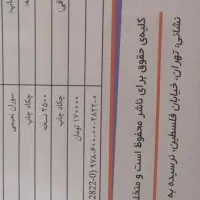 نشانی: تهران، خیابان فلسطین، نرسیده به
کلیه‌ی حقوق برای ناشر محفوظ است و متخل
۹۷۸-۶۰۰-۰۰-۲۸۲۲-۰ (2822-0
۱۷۰۰۰۰ تومان
چکاد چاپ
۲۵۰۰ نسخه
چکاد چاپ
سوزان نعیمی
چاپ: